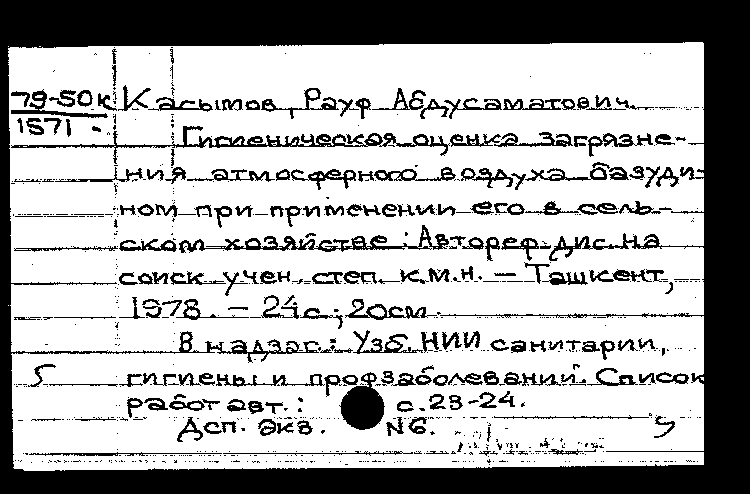 79-50к Касымов, Рауф Абдусаматович.
1571 -
Гигиеническая оценка загрязне-
ния атмосферного воздуха базуди-
ном при применении его в сель-
ском хозяйстве: Автореф. дис. на
соиск. учен. степ. к.м.н. – Ташкент,
1978. – 24с.; 20см.
В надзаг.: Узб. НИИ санитарии,
5 гигиены и профзаболеваний. Список
работ авт.: с.23-24.
Дсп. Экз. N6.